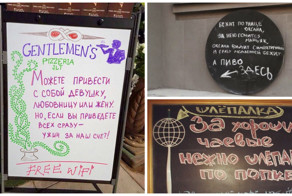 GENTLEMEN'S
PIZZERIA
Можете привести
с собой девушку,
любовницу или жену.
Но, если Вы приведёте
всех сразу -
ужин за наш счёт!
FREE WiFi
БЕЖИТ ПО УЛИЦЕ
ОКСАНА,
ЗА НЕЙ ГОНИТСЯ
А ПИВО
ЗДЕСЬ
ШЛЁПАЛКА
За хорошие
чаевые
нежно шлёпаем
по попке